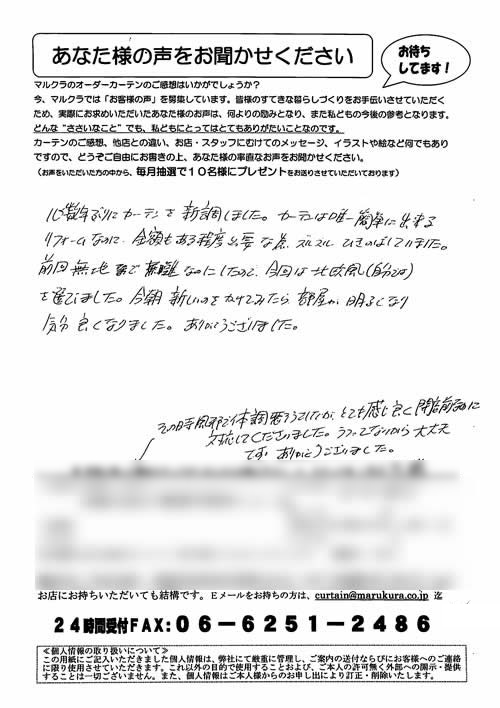 あなた様の声をお聞かせください
お待ち
してます！
マルクラのオーダーカーテンのご感想はいかがでしょうか？
今、マルクラでは「お客様の声」を募集しています。皆様のすてきな暮らしづくりをお手伝いさせていただく
ため、実際にお求めいただいたあなた様のお声は、何よりの励みとなり、また私どもの今後の参考となります。
どんな“ささいなこと”でも、私どもにとってはとてもありがたいことなのです。
カーテンのご感想、他店との違い、お店・スタッフにむけてのメッセージ、イラストや絵など何でもあり
ですので、どうぞご自由にお書きの上、あなた様の率直なお声をお聞かせください。
（お声をいただいた方の中から、毎月抽選で１０名様にプレゼントをお送りさせていただいております）
十数年ぶりにカーテンを新調しました。カーテンは唯一簡単に出来る
リフォームなのに、金額もある程度必要な為、ズルズルひきのばしていました。
前回無地で無難なのにしたので、今回は北欧風(自分では)
を選びました。今朝新しいのをかけてみたら部屋が明るくなり
気分良くなりました。ありがとうございました。
その時風邪で体調悪そうでしたが、とても感じ良く閉店前なのに
対応してくださいました。うつってないから大丈夫
です。ありがとうございました。
お店にお持ちいただいても結構です。Ｅメールをお持ちの方は、curtain@marukura.co.jp 迄
２４時間受付FAX:０６－６２５１－２４８６
≪個人情報の取り扱いについて≫
この用紙にご記入いただきました個人情報は、弊社にて厳重に管理し、ご案内の送付ならびにお客様へのご連絡
に限り使用させていただきます。これ以外の目的で使用することおよび、ご本人の許可無く外部への開示・提供
することは一切ございません。また、個人情報はご本人様からのお申し出により訂正・削除いたします。